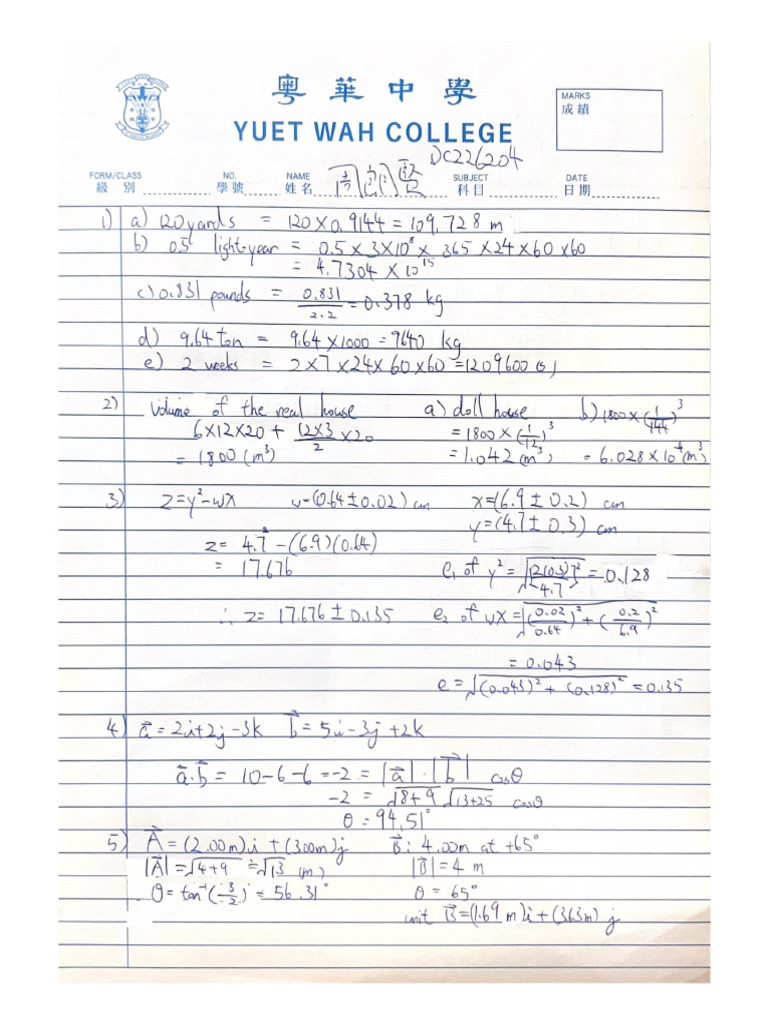 粵華中學
YUET WAH COLLEGE
MARKS
成績
DC226204
FORM/CLASS NO. NAME SUBJECT DATE
級別 學號 姓名 科目 日期
1) a) 120 yards = 120 × 0.9144 = 109.728 m
b) 0.5 light-year = 0.5 × 3 × 10⁸ × 365 × 24 × 60 × 60
= 4.7304 × 10¹⁵
c) 0.831 pounds = 0.831/2.2 = 0.378 kg
d) 9.64 ton = 9.64 × 1000 = 9640 kg
e) 2 weeks = 2 × 7 × 24 × 60 × 60 = 1209600 (s)
2) Volume of the real house a) doll house b) 1800 × (1/144)³
6×12×20 + (12×3)/2 ×20 = 1800 × (1/12)³
= 1800 (m³) = 1.042 (m³) = 6.028 × 10⁻⁴ (m³)
3) z = y² − wx w = (0.64 ± 0.02) cm x = (6.9 ± 0.2) cm
y = (4.7 ± 0.3) cm
z = 4.7² − (6.9)(0.64)
= 17.676 e₁ of y² = √[2(0.3)/4.7]² = 0.128
∴ z = 17.676 ± 0.135 e₂ of wx = √(0.02/0.64)² + (0.2/6.9)²
= 0.043
e = √(0.043)² + (0.128)² = 0.135
4) a⃗ = 2i+2j−3k b⃗ = 5i−3j+2k
a⃗·b⃗ = 10−6−6 = −2 = |a⃗|·|b⃗| cosθ
−2 = √8+9 √13+25 cosθ
θ = 94.51°
5) A⃗ = (2.00m)i + (300m)j B⃗: 4.00m at +65°
|A⃗| = √4+9 = √13 (m) |B⃗| = 4 m
θ = tan⁻¹(3/2) = 56.31° θ = 65°
unit B⃗ = (1.69 m)i + (363m) j